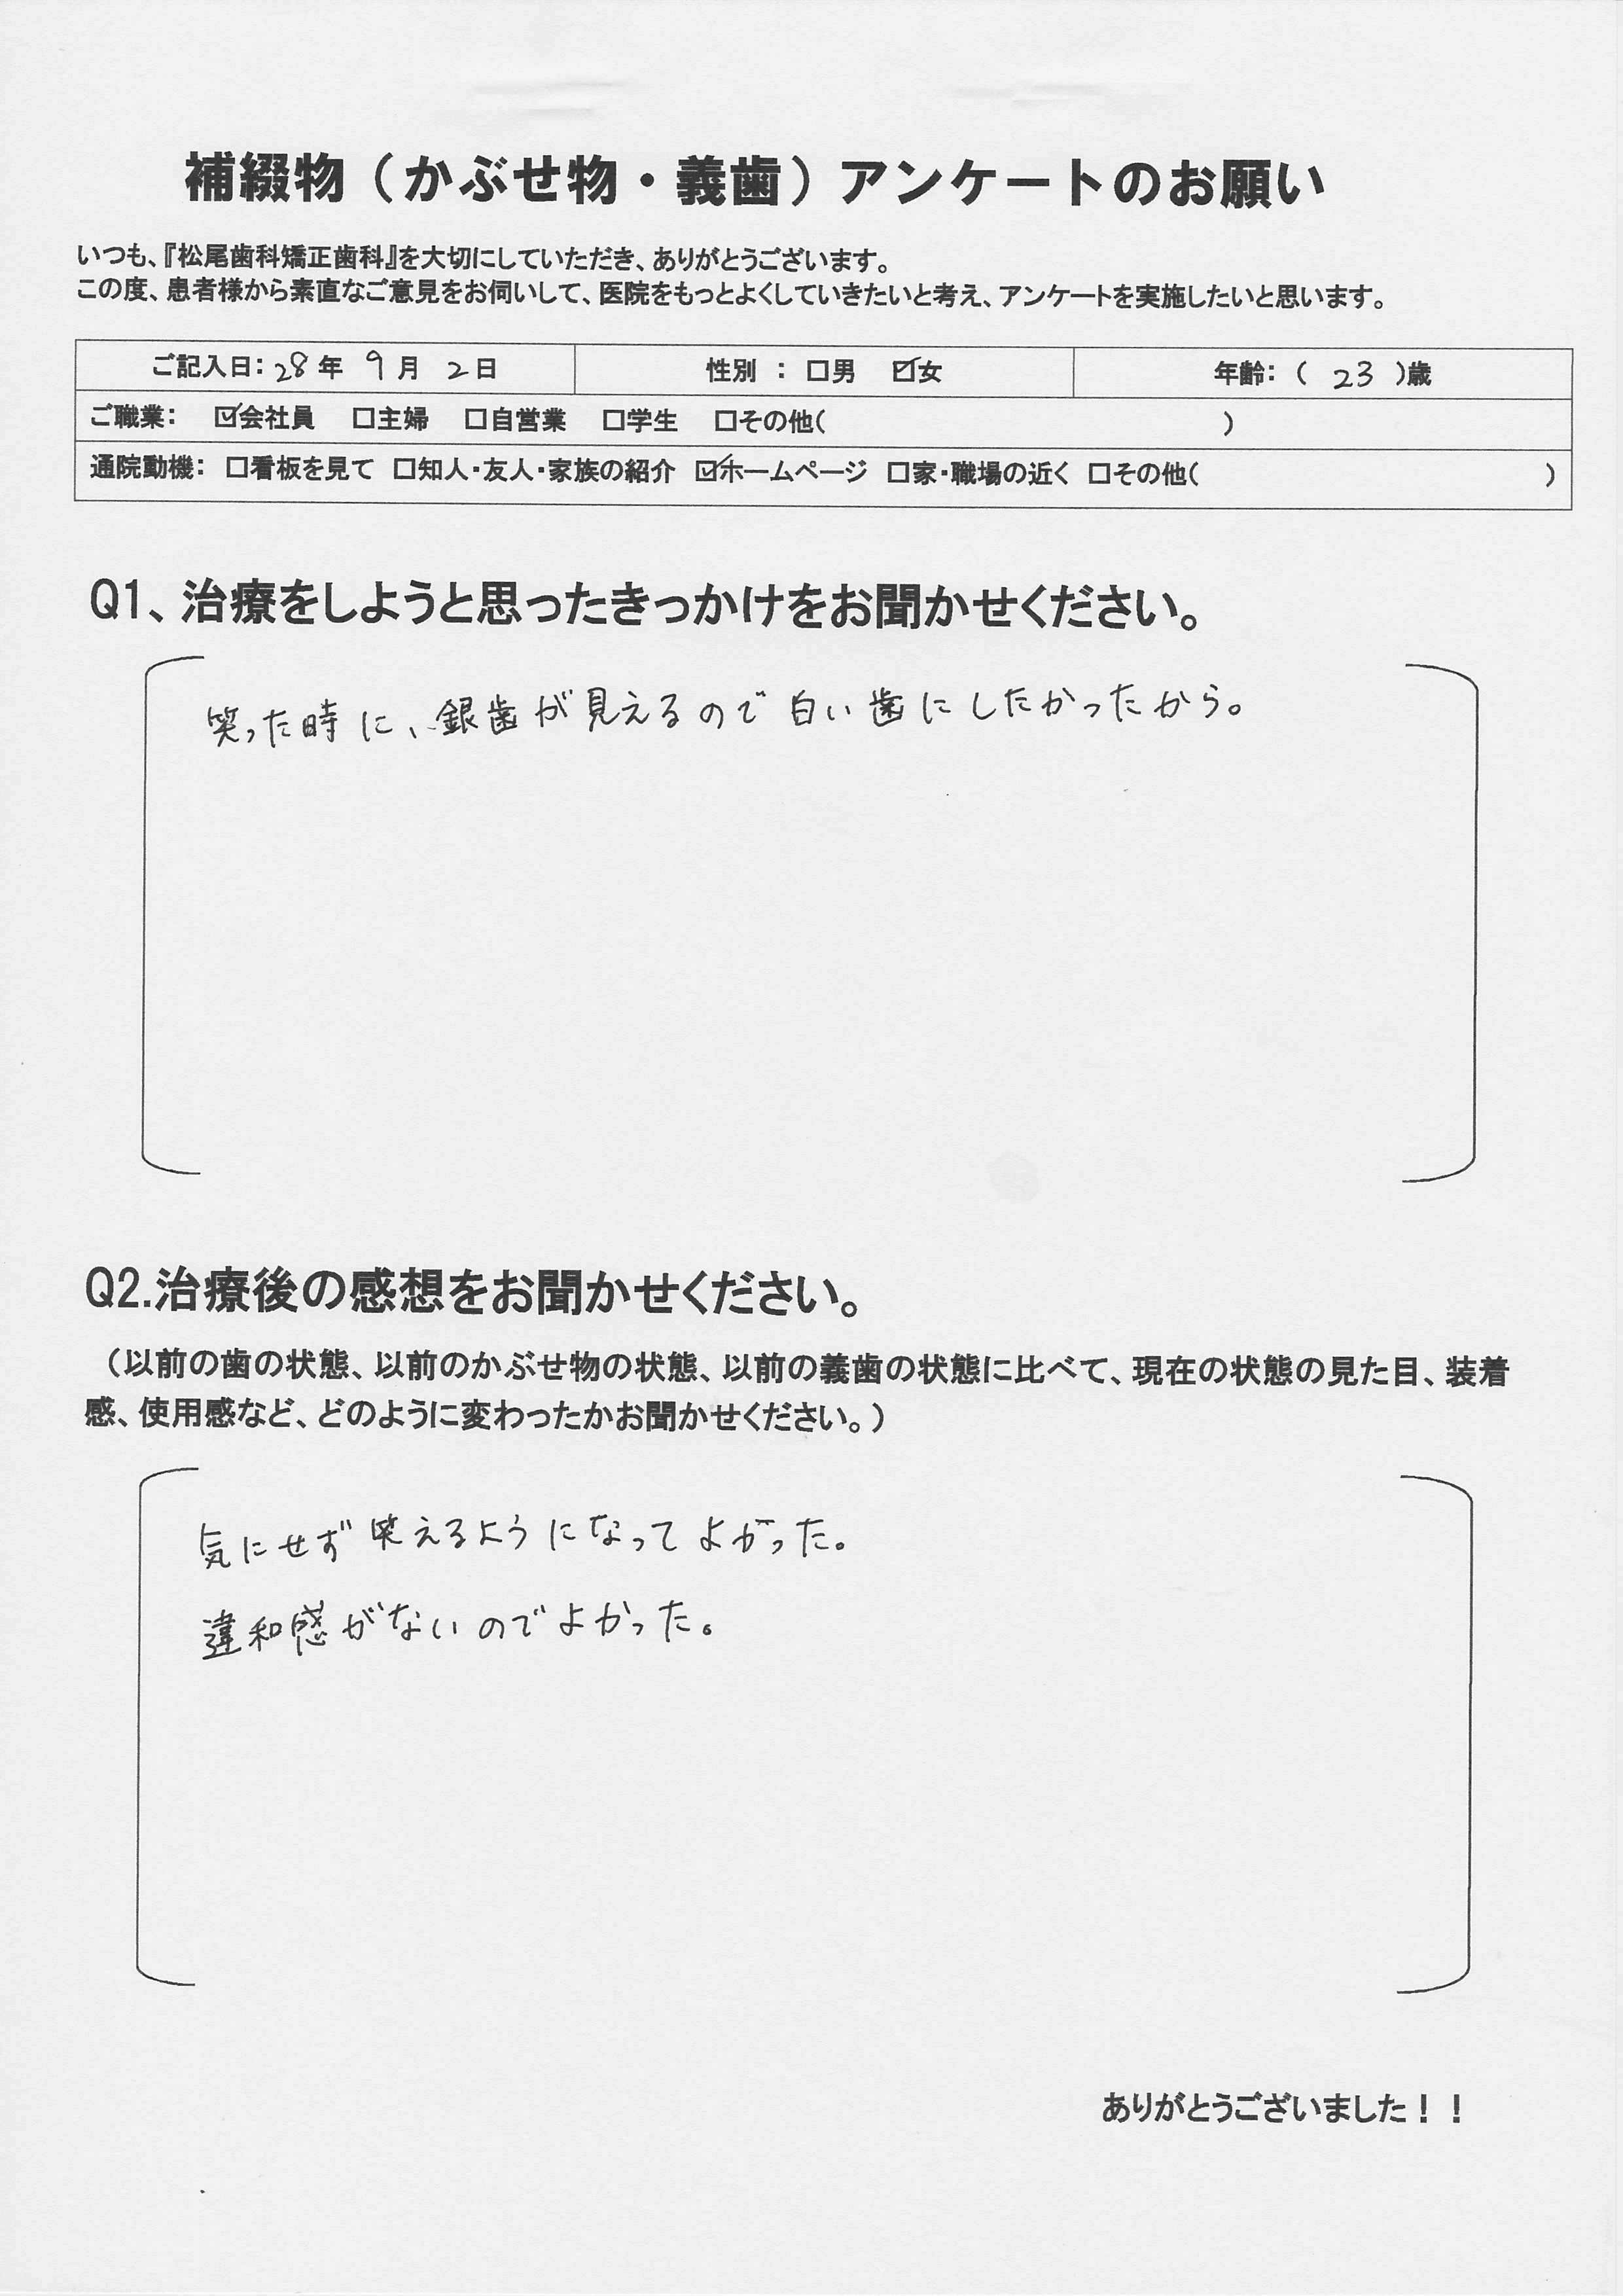 補綴物（かぶせ物・義歯）アンケートのお願い
いつも、『松尾歯科矯正歯科』を大切にしていただき、ありがとうございます。
この度、患者様から素直なご意見をお伺いして、医院をもっとよくしていきたいと考え、アンケートを実施したいと思います。
ご記入日：28年 9月 2日 性別 ： □男 ☑女 年齢：（ 23 ）歳
ご職業： ☑会社員 □主婦 □自営業 □学生 □その他（ ）
通院動機： □看板を見て □知人・友人・家族の紹介 ☑ホームページ □家・職場の近く □その他（ ）
Q1、治療をしようと思ったきっかけをお聞かせください。
笑った時に、銀歯が見えるので白い歯にしたかったから。
Q2.治療後の感想をお聞かせください。
（以前の歯の状態、以前のかぶせ物の状態、以前の義歯の状態に比べて、現在の状態の見た目、装着
感、使用感など、どのように変わったかお聞かせください。）
気にせず笑えるようになってよかった。
違和感がないのでよかった。
ありがとうございました！！